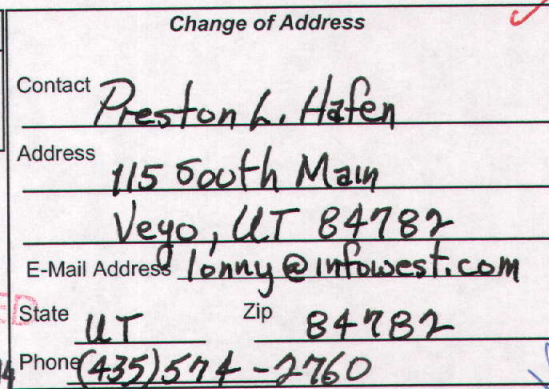 Change of Address
Contact Preston L. Hafen
Address
115 South Main
Veyo, UT 84782
E-Mail Address lonny@infowest.com
State UT Zip 84782
Phone (435) 574-2760